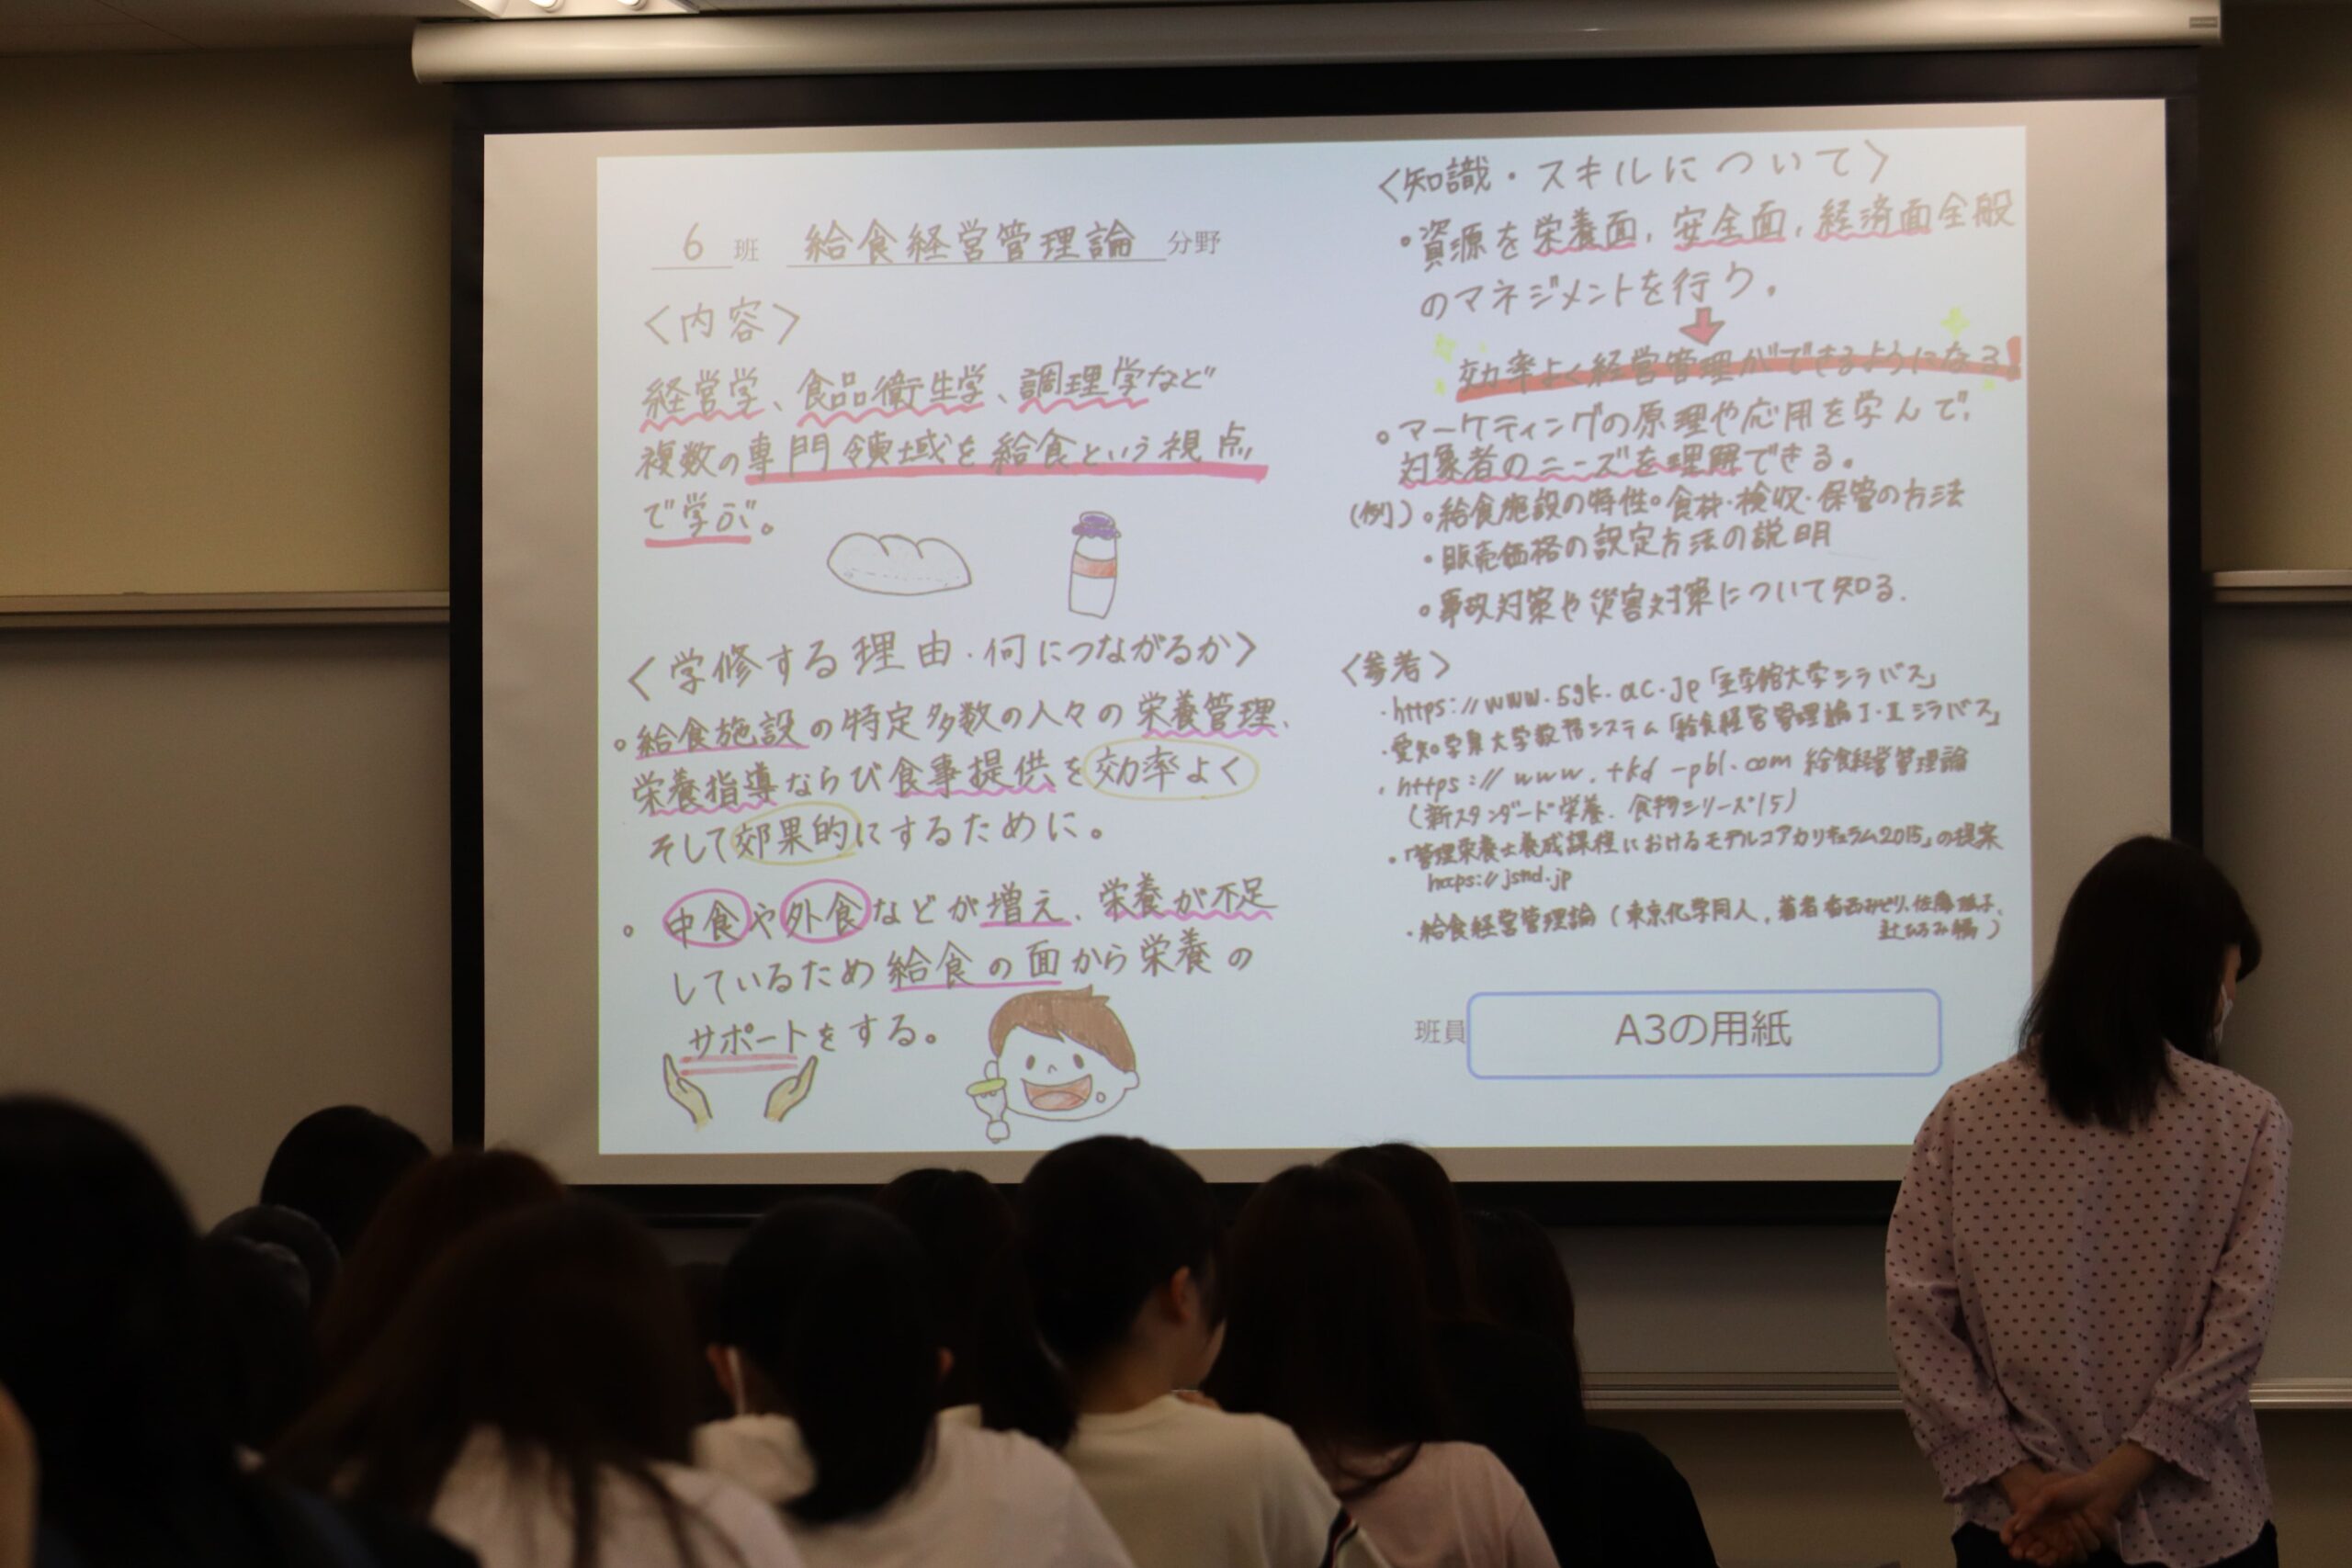 6 班 給食経営管理論 分野
〈内容〉
経営学、食品衛生学、調理学など
複数の専門領域を給食という視点
で学ぶ。
〈学修する理由・何につながるか〉
。給食施設の特定多数の人々の栄養管理、
栄養指導ならび食事提供を効率よく
そして効果的にするために。
。中食や外食などが増え、栄養が不足
しているため給食の面から栄養の
サポートをする。
〈知識・スキルについて〉
・資源を栄養面，安全面，経済面全般
のマネジメントを行う。
効率よく経営管理ができるようになる!
。マーケティングの原理や応用を学んで、
対象者のニーズを理解できる。
(例)。給食施設の特性。食材・検収・保管の方法
・販売価格の設定方法の説明
。事故対策や災害対策について知る.
〈参考〉
・https://www.sgk.ac.jp「至学館大学シラバス」
・愛知学泉大学教務システム「給食経営管理論Ⅰ・Ⅱシラバス」
・https://www.tkd-pbl.com 給食経営管理論
(新スタンダード栄養．食物シリーズ15)
・「管理栄養士養成課程におけるモデルコアカリキュラム2015」の提案
https://jsnd.jp
・給食経営管理論(東京化学同人，著者 香西みどり、佐藤瑶子、
辻ひろみ編)
班員 A3の用紙